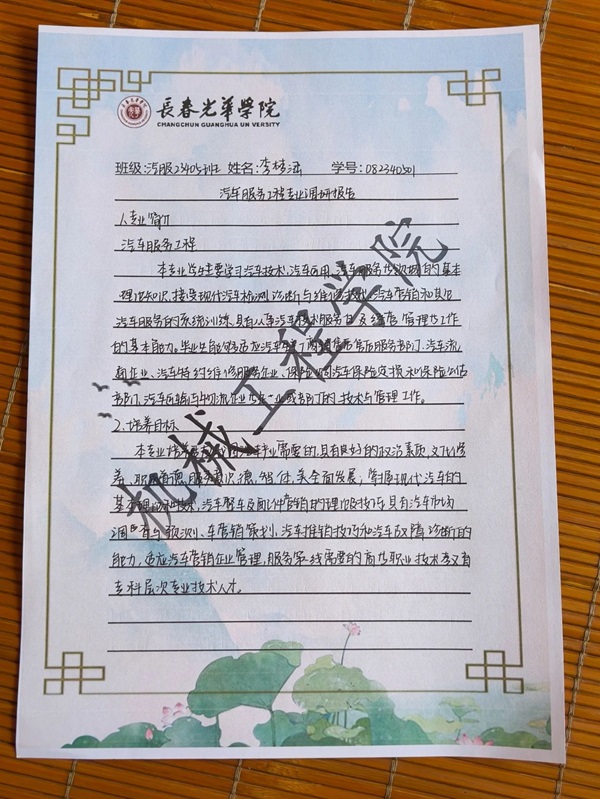 長春光華學院
CHANGCHUN GUANGHUA UN VERSITY
班级:汽服23405班 姓名:李 学号:082340501
汽车服务工程专业调研报告
1.专业简介
汽车服务工程
本专业学生主要学习汽车技术、汽车应用、汽车服务技领域的基本
理论知识,接受现代汽车检测诊断与维修技术、汽车营销和其它
汽车服务的系统训练,具有从事汽车技术服务及经营管理等工作
的基本能力。毕业生能够适应汽车生产售后服务部门、汽车流
通企业、汽车特约维修服务企业、保险公司汽车保险定损和保险公估
部门,汽车运输与物流企业或部门的技术与管理工作。
2.培养目标
本专业培养需要的,具有良好的政治素质,文化修
养、职业道德,服务意识,德、智、体、美全面发展;掌握现代汽车的
基本理论和技术,汽车整车及配件营销的理论及技巧,具有汽车市场
调查与预测、车营销策划、汽车推销技巧和汽车故障诊断的
能力,适应汽车营销企业管理,服务第一线需要的高等职业技术教育
专科层次专业技术人才。
机械工程学院